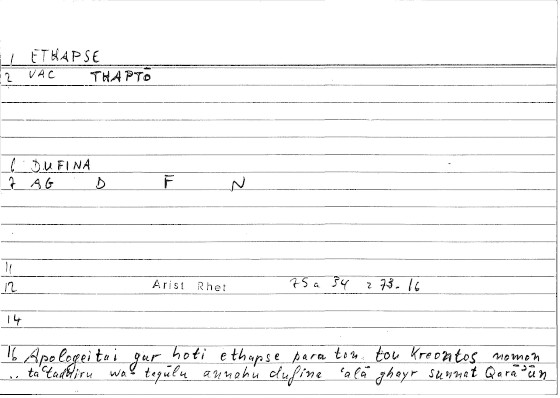 1 ETHAPSE
2 VAC THAPTŌ
6 DUFINA
7 AG D F N
11
12 Arist Rhet 75a 34 = 73.16
14
16 Apologeitai gar hoti ethapse para ton tou Kreontos nomon
.. ta‘tadhiru wa-teqūlu annahu dufina ‘alā ghayr sunnat Qarā’ūn